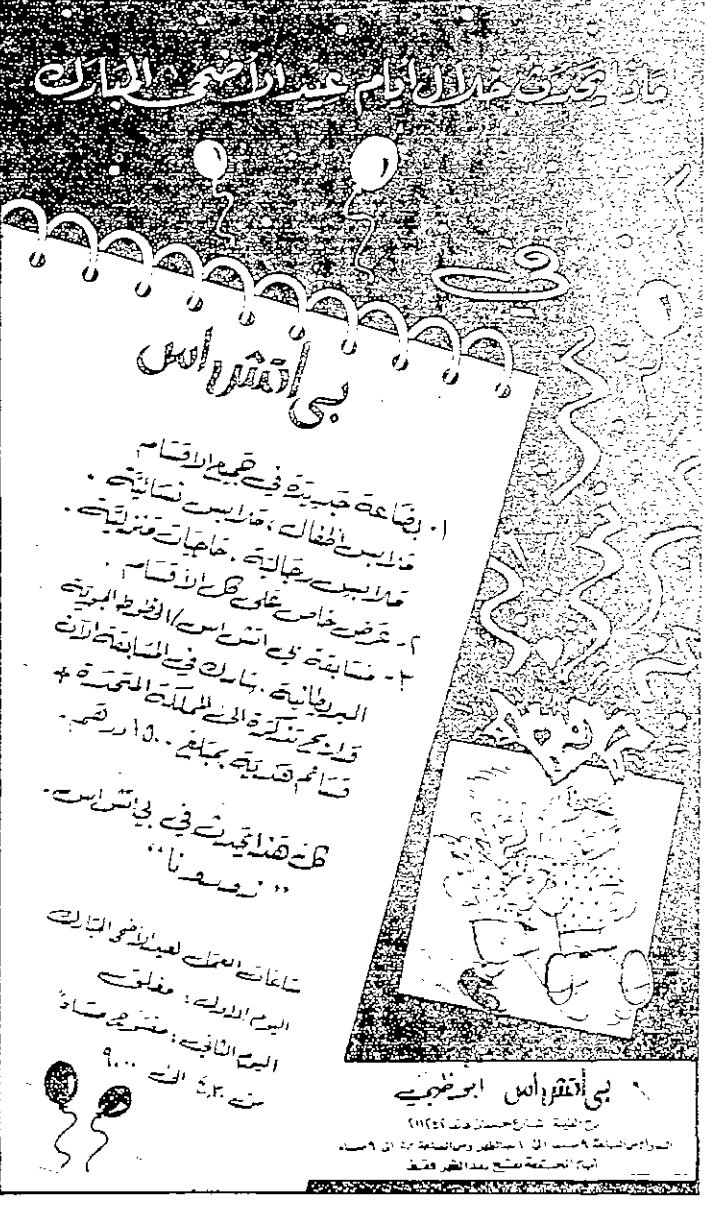 ماذا يحدث خلال أيام عيد الأضحى المبارك
في
بي اتش اس
١- بضاعة جديدة في جميع الاقسام
ملابس اطفال، ملابس نسائية .
ملابس رجالية . حاجيات منزلية .
٢- عرض خاص على كل الأقسام .
٣- مسابقة بي اتش اس/الخطوط الجوية
البريطانية . شارك في المسابقة الآن
واربح تذكرة الى المملكة المتحدة +
قسائم هدية بمبلغ ١٥٠٠ درهم .
كل هذا يحدث في بي اتش اس .
"زورونا"
ساعات العمل لعيد الأضحى المبارك
اليوم الاول : مغلق
اليوم الثاني : مفتوح مساءً
من ٤,٣٠ الى ٩,٠٠
بي أتش أس ابوظبي
شارع حمدان
أيام الجمعة نفتح بعد الظهر فقط